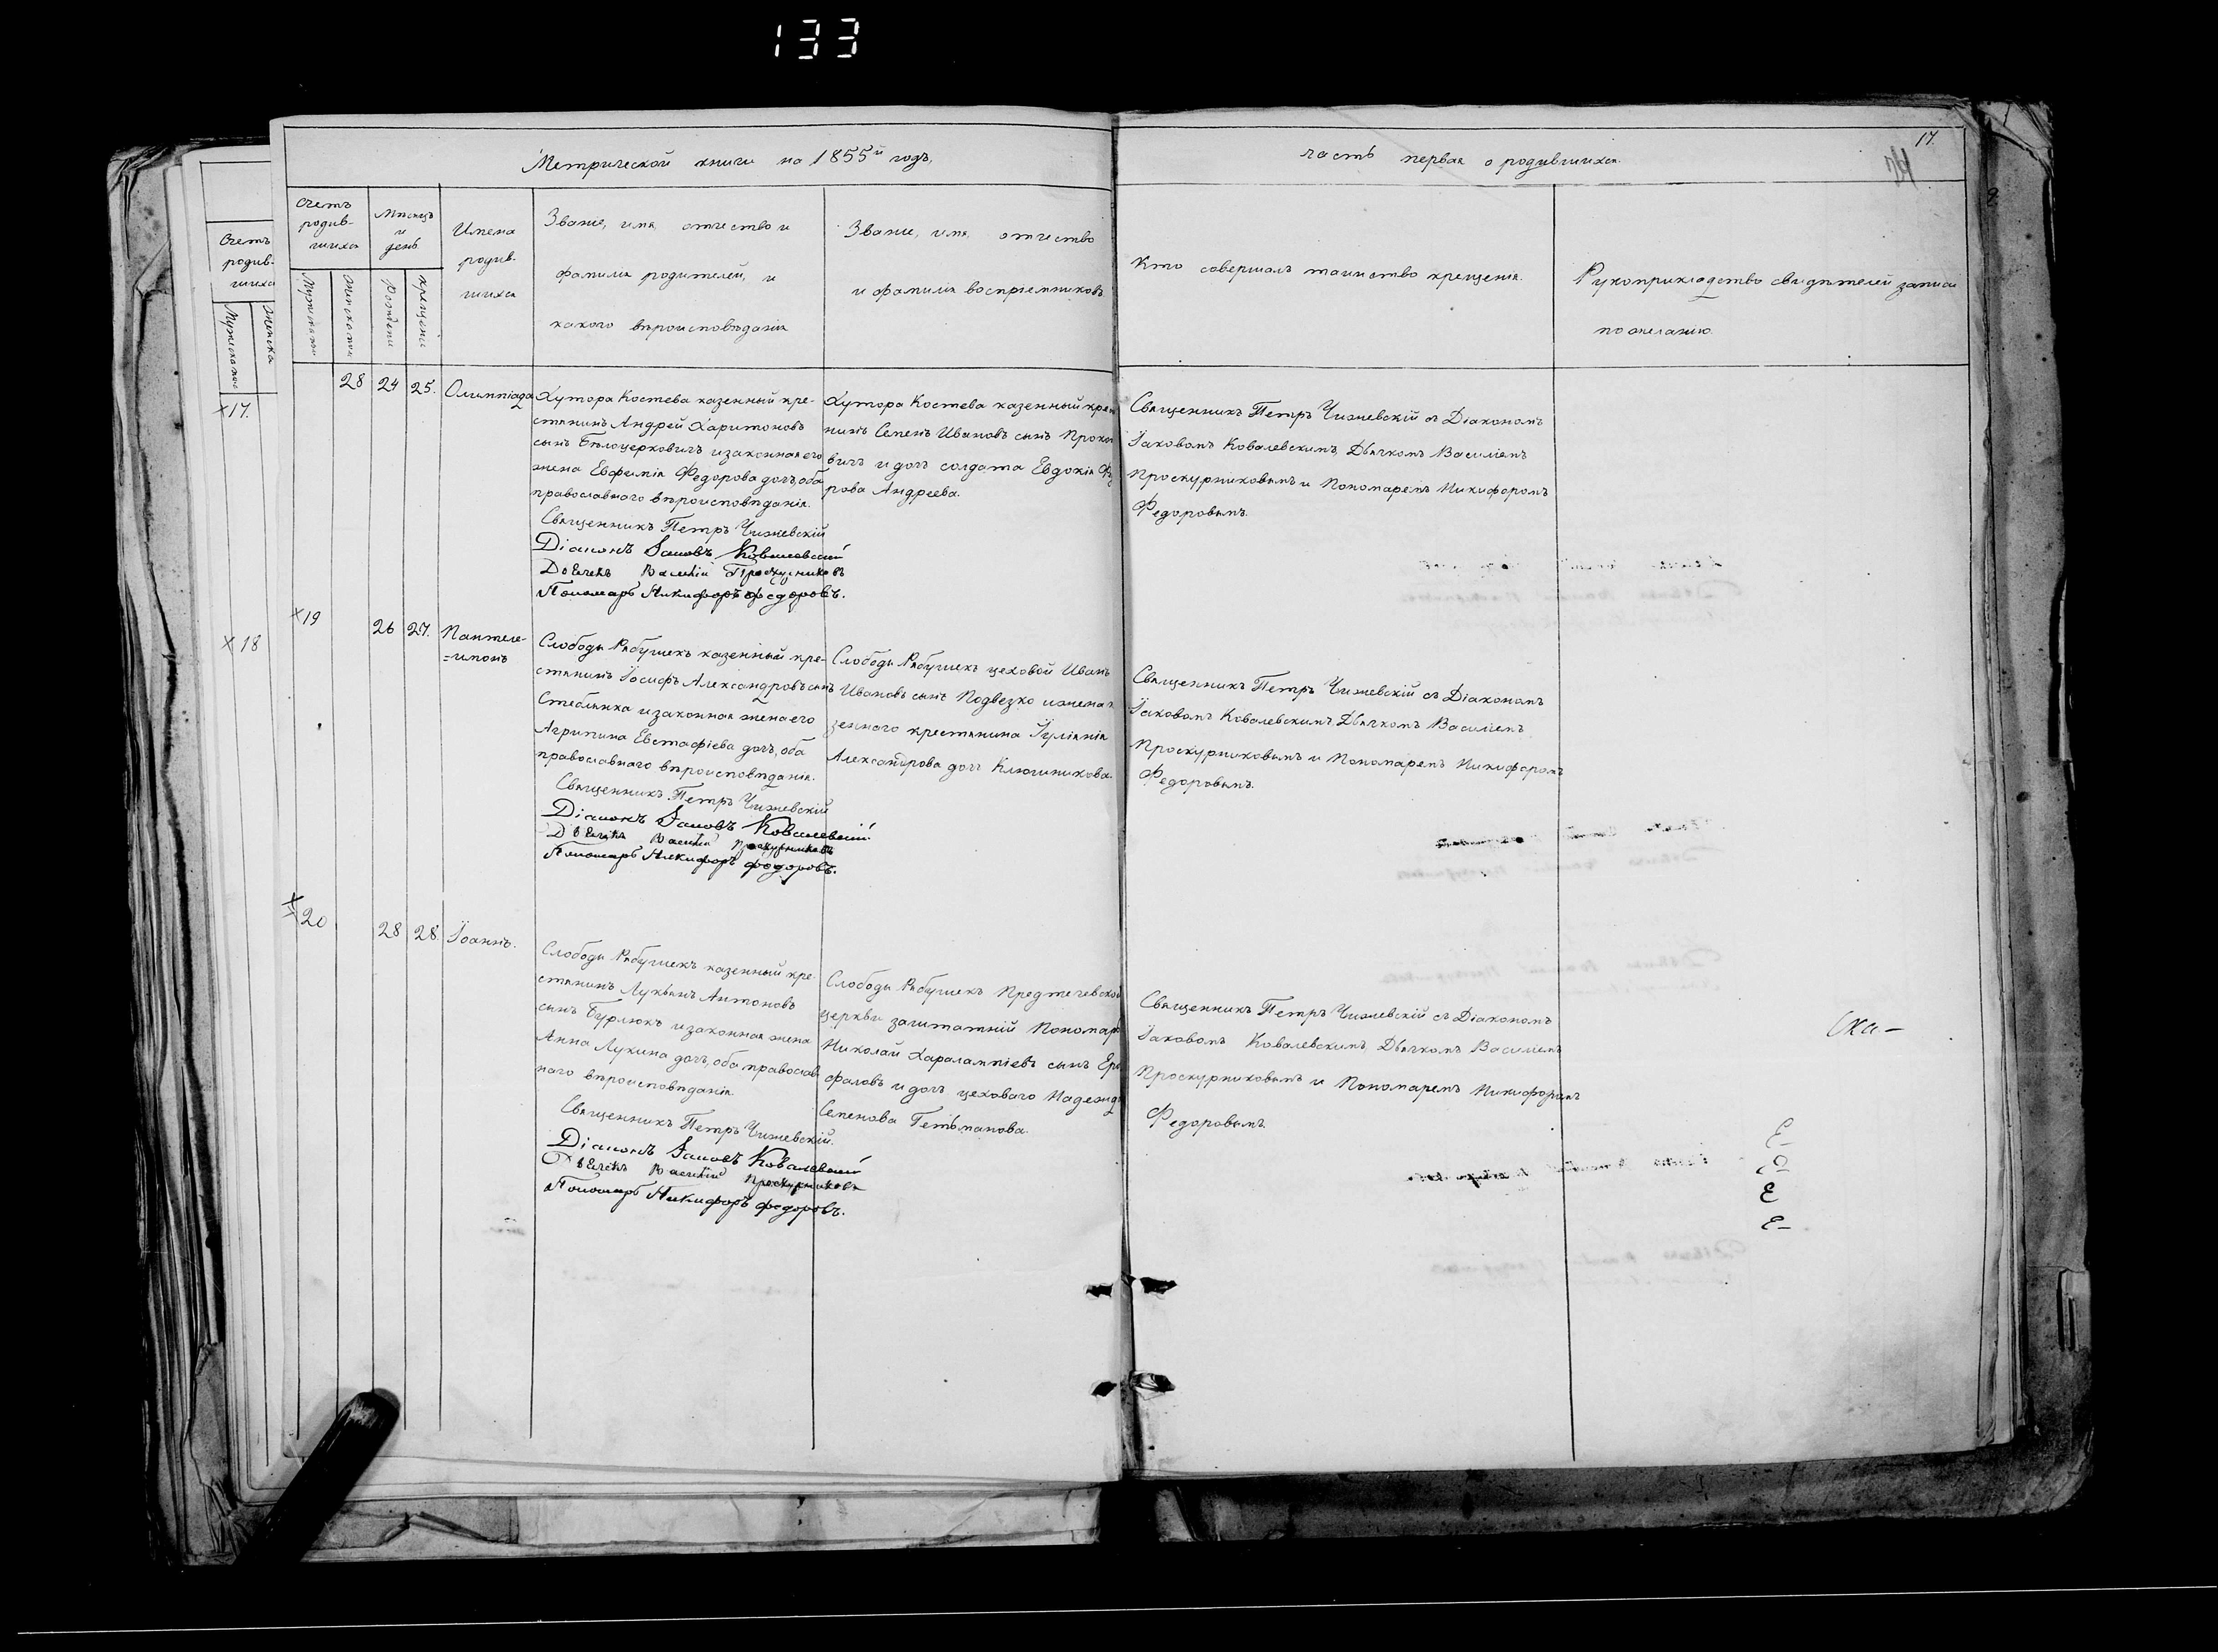 133
Метрической книги на 1855й годъ,
часть первая о родившихся.
17.
Счетъ родив- шихся
Мѣсяцъ и день
Имена родив- шихся
Званіе, имя, отчество и
фамилія родителей, и
какого вѣроисповѣданія
Званіе, имя, отчество
и фамилія воспріемниковъ
Кто совершалъ таинство крещенія.
Рукоприкладство свидѣтелей записи
по желанію.
Счетъ
родив-
шихся
х17.
х18
28 24 25. Олимпіада
Хутора Костева казенный кре-
стянинъ Андрей Харитоновъ
сынъ Бѣлоцерковичъ и законная его
жена Евфимія Федорова дочь, оба
православнаго вѣроисповѣданія.
Священникъ Петръ Чижевскій
Діаконъ Іаковъ Ковалевскій
Дьячекъ Василій Проскурниковъ
Пономарь Никифоръ Федоровъ.
Хутора Костева казенный крест
нинъ Семенъ Ивановъ сынъ Проко
вичъ и дочь солдата Евдокія
рова Андреева.
Священникъ Петръ Чижевскій съ Діакономъ
Іаковомъ Ковалевскимъ, Дьячкомъ Василіемъ
Проскурниковымъ и Пономаремъ Никифоромъ
Федоровымъ.
х19 26 27. Пантеле-
=имонъ
Слободы Рябушекъ казенный кре-
стянинъ Іосифъ Александровъ сынъ
Стеблянка и законная жена его
Агрипина Евстафіева дочь, оба
православнаго вѣроисповѣданія.
Священникъ Петръ Чижевскій
Діаконъ Іаковъ Ковалевскій
Дьячекъ Василій Проскурниковъ
Пономарь Никифоръ Федоровъ.
Слободы Рябушекъ цеховой Иванъ
Ивановъ сынъ Подвезко и жена к
зеннаго крестянина Іуліянія
Александрова дочь Ключникова.
Священникъ Петръ Чижевскій съ Діакономъ
Іаковомъ Ковалевскимъ, Дьячкомъ Василіемъ
Проскурниковымъ и Пономаремъ Никифоромъ
Федоровымъ.
х20 28 28. Іоаннъ.
Слободы Рябушекъ казенный кре-
стянинъ Лукьянъ Антоновъ
сынъ Бурлюкъ и законная жена
Анна Лукина дочь, оба православ
наго вѣроисповѣданія.
Священникъ Петръ Чижевскій.
Діаконъ Іаковъ Ковалевскій
Дьячекъ Василій Проскурниковъ
Пономарь Никифоръ Федоровъ.
Слободы Рябушекъ Предтечевской
церкви заштатній Пономарь
Николай Харалампіевъ сынъ Ере
фаловъ и дочь цеховаго Надежда
Семенова Гетьманова.
Священникъ Петръ Чижевскій съ Діакономъ
Іаковомъ Ковалевскимъ, Дьячкомъ Василіемъ
Проскурниковымъ и Пономаремъ Никифоромъ
Федоровымъ